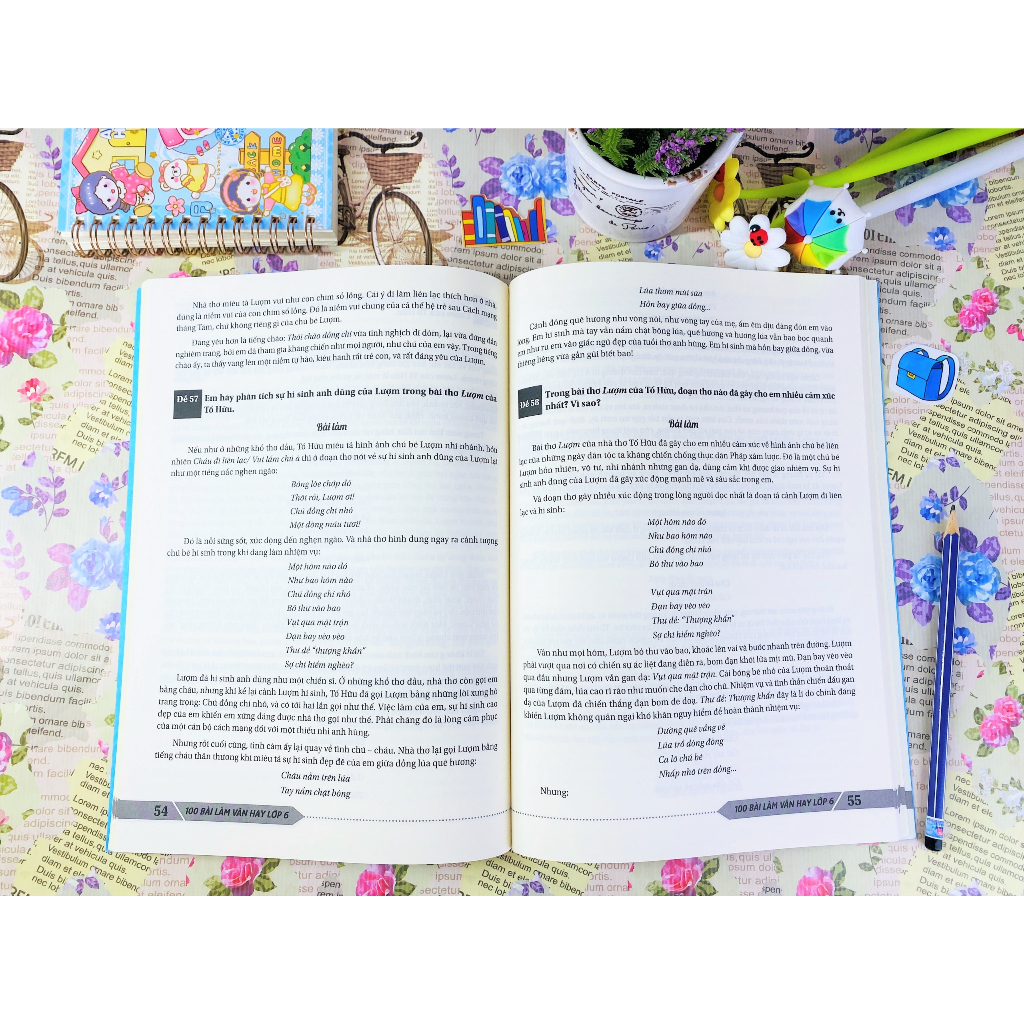 Nhà thơ miêu tả Lượm vui như con chim sổ lồng. Cái ý đi làm liên lạc thích hơn ở nhà
đúng là niềm vui của con chim sổ lồng. Đó là niềm vui chung của cả thế hệ trẻ sau Cách mạng
tháng Tám, chứ không riêng gì của chú bé Lượm.
Đáng yêu hơn là tiếng chào: Thôi chào đồng chí vừa tinh nghịch dí dỏm, lại vừa đúng đắn
nghiêm trang, bởi em đã tham gia kháng chiến như mọi người, như chú của em vậy. Trong tiếng
chào ấy, ta thấy vang lên một niềm tự hào, kiêu hãnh rất trẻ con, và rất đáng yêu của Lượm.
Đề 57 Em hãy phân tích sự hi sinh anh dũng của Lượm trong bài thơ Lượm của
Tố Hữu.
Bài làm
Nếu như ở những khổ thơ đầu, Tố Hữu miêu tả hình ảnh chú bé Lượm nhí nhảnh, hồn
nhiên Cháu đi liên lạc/ Vui lắm chú à thì ở đoạn thơ nói về sự hi sinh anh dũng của Lượm lại
như một tiếng nấc nghẹn ngào:
Bỗng lòe chớp đỏ
Thôi rồi, Lượm ơi!
Chú đồng chí nhỏ
Một dòng máu tươi!
Đó là nỗi sửng sốt, xúc động đến nghẹn ngào. Và nhà thơ hình dung ngay ra cảnh tượng
chú bé hi sinh trong khi đang làm nhiệm vụ:
Một hôm nào đó
Như bao hôm nào
Chú đồng chí nhỏ
Bỏ thư vào bao
Vụt qua mặt trận
Đạn bay vèo vèo
Thư đề “thượng khẩn”
Sợ chi hiểm nghèo?
Lượm đã hi sinh anh dũng như một chiến sĩ. Ở những khổ thơ đầu, nhà thơ còn gọi em
bằng cháu, nhưng khi kể lại cảnh Lượm hi sinh, Tố Hữu đã gọi Lượm bằng những lời xưng hô
trang trọng: Chú đồng chí nhỏ, và có tới hai lần gọi như thế. Việc làm của em, sự hi sinh cao
đẹp của em khiến em xứng đáng được nhà thơ gọi như thế. Phải chăng đó là lòng cảm phục
của một cán bộ cách mạng đối với một thiếu nhi anh hùng.
Nhưng rốt cuối cùng, tình cảm ấy lại quay về tình chú – cháu. Nhà thơ lại gọi Lượm bằng
tiếng cháu thân thương khi miêu tả sự hi sinh đẹp đẽ của em giữa đồng lúa quê hương:
Cháu nằm trên lúa
Tay nắm chặt bông
54 100 BÀI LÀM VĂN HAY LỚP 6
Lúa thơm mùi sữa
Hồn bay giữa đồng...
Cánh đồng quê hương như vòng nôi, như vòng tay của mẹ, ấm êm dịu dàng đón em vào
lòng. Em hi sinh mà tay vẫn nắm chặt bông lúa, quê hương và hương lúa vẫn bao bọc quanh
em như ru em vào giấc ngủ đẹp của tuổi thơ anh hùng. Em hi sinh mà hồn bay giữa đồng, vừa
thiêng liêng vừa gần gũi biết bao!
Đề 58 Trong bài thơ Lượm của Tố Hữu, đoạn thơ nào đã gây cho em nhiều cảm xúc
nhất? Vì sao?
Bài làm
Bài thơ Lượm của nhà thơ Tố Hữu đã gây cho em nhiều cảm xúc về hình ảnh chú bé liên
lạc của những ngày dân tộc ta kháng chiến chống thực dân Pháp xâm lược. Đó là một chú bé
Lượm hồn nhiên, vô tư, nhí nhảnh nhưng gan dạ, dũng cảm khi được giao nhiệm vụ. Sự hi
sinh anh dũng của Lượm đã gây xúc động mạnh mẽ và sâu sắc trong em.
Và đoạn thơ gây nhiều xúc động trong lòng người đọc nhất là đoạn tả cảnh Lượm đi liên
lạc và hi sinh:
Một hôm nào đó
Như bao hôm nào
Chú đồng chí nhỏ
Bỏ thư vào bao
Vụt qua mặt trận
Đạn bay vèo vèo
Thư đề: “Thượng khẩn”
Sợ chi hiểm nghèo?
Vẫn như mọi hôm, Lượm bỏ thư vào bao, khoác lên vai và bước nhanh trên đường. Lượm
phải vượt qua nơi có chiến sự ác liệt đang diễn ra, bom đạn khói lửa mịt mù. Đạn bay vèo vèo
qua đầu nhưng Lượm vẫn gan dạ: Vụt qua mặt trận. Cái bóng bé nhỏ của Lượm thoăn thoắt
qua từng đám, lúa cao rì rào như muốn che đạn cho chú. Nhiệm vụ và tinh thần chiến đấu gan
dạ của Lượm đã chiến thắng đạn bom đe doạ. Thư đề: Thượng khẩn đấy là lí do chính đáng
khiến Lượm không quản ngại khó khăn nguy hiểm để hoàn thành nhiệm vụ:
Đường quê vắng vẻ
Lúa trổ đòng đòng
Ca lô chú bé
Nhấp nhô trên đồng...
Nhưng:
100 BÀI LÀM VĂN HAY LỚP 6 55